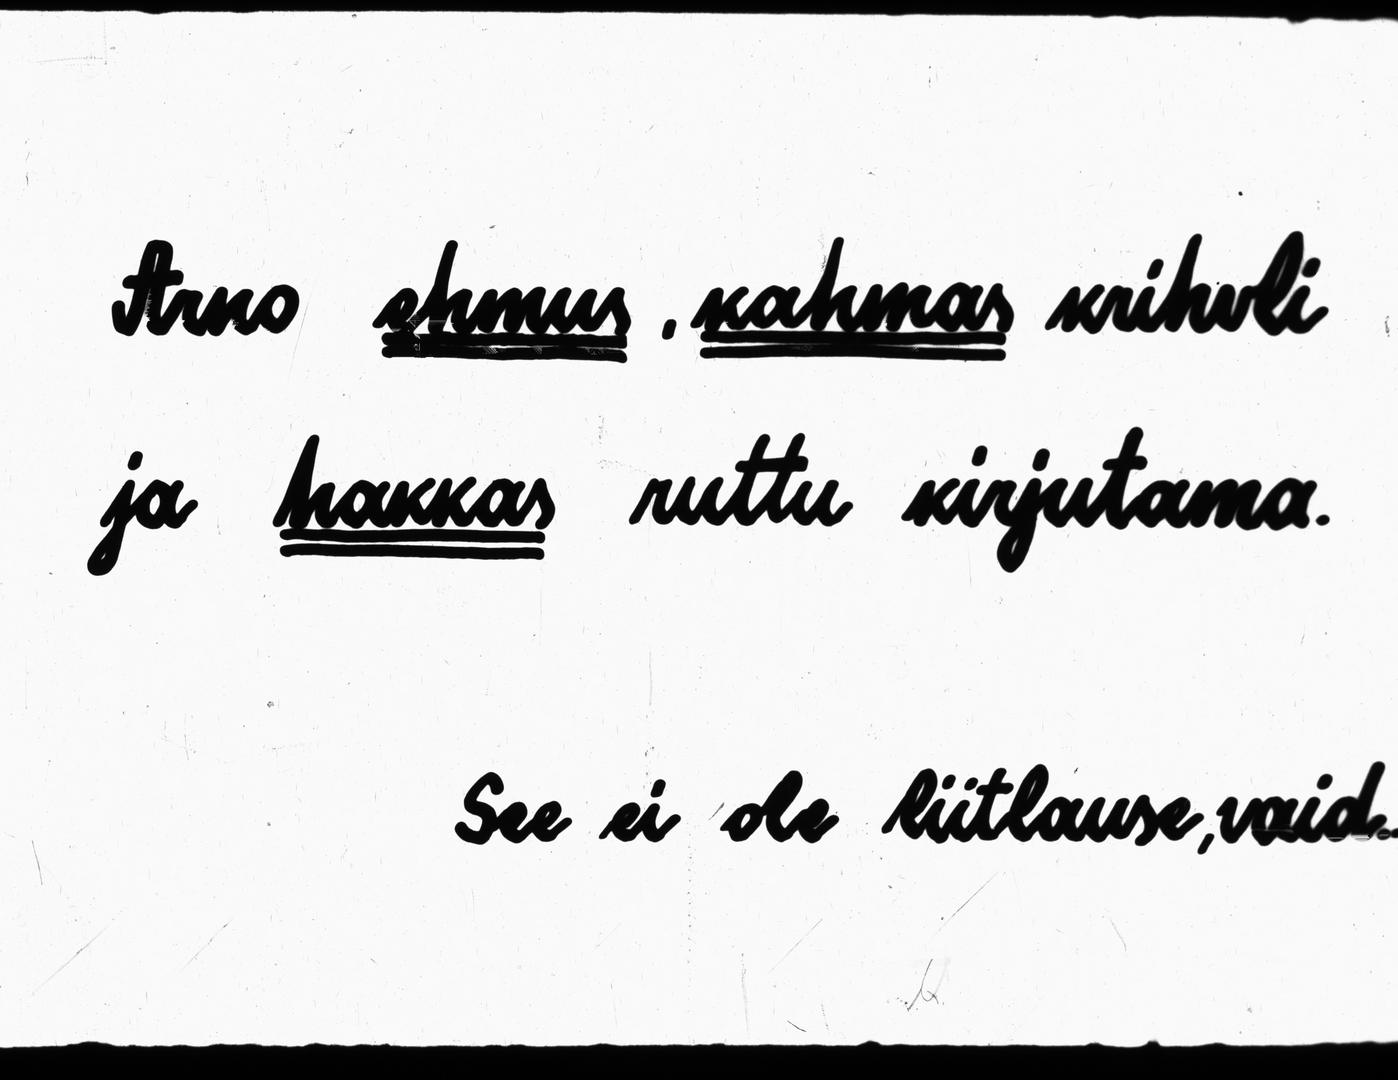 Arno ehmus, kahmas krihvli
ja hakkas ruttu kirjutama.
See ei ole liitlause, vaid..